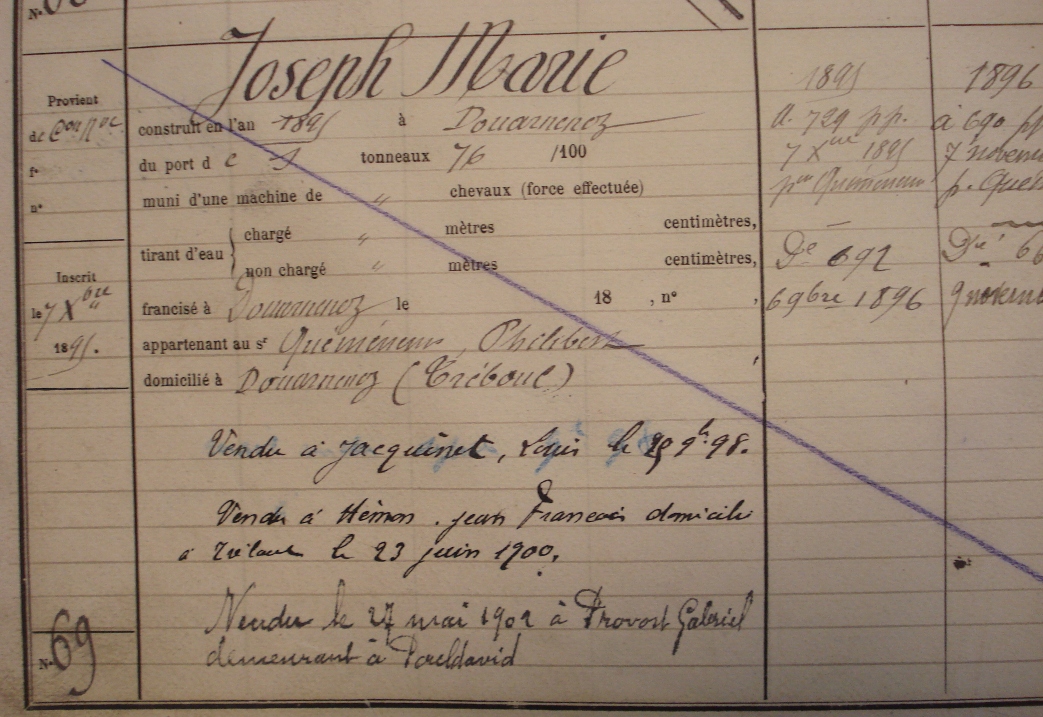 Joseph Marie
Provient
de Con Nce
construit en l'an 1895 à Douarnenez
du port de 3 tonneaux 76 /100
fo
muni d'une machine de " chevaux (force effectuée)
no
tirant d'eau { chargé " mètres centimètres,
non chargé " mètres centimètres,
Inscrit
le 7 Xbre
1895.
francisé à Douarnenez le 18 , no ,
appartenant au sr Quéméneur, Philibert
domicilié à Douarnenez (Tréboul)
Vendu à Jacquinet, Louis le 9bre 98.
Vendu à Hémon. jean François domicilié
à le 23 juin 1900.
Vendu le 27 mai 1902 à Provost Gabriel
demeurant à Pouldavid
No 69
No
1895
a. 729 pp.
7 Xbre 1895
pr Quéméneur
De 692
6 9bre 1896
1896
à 690 pp
7 novem
p. Quém
Dse 66
9 novem